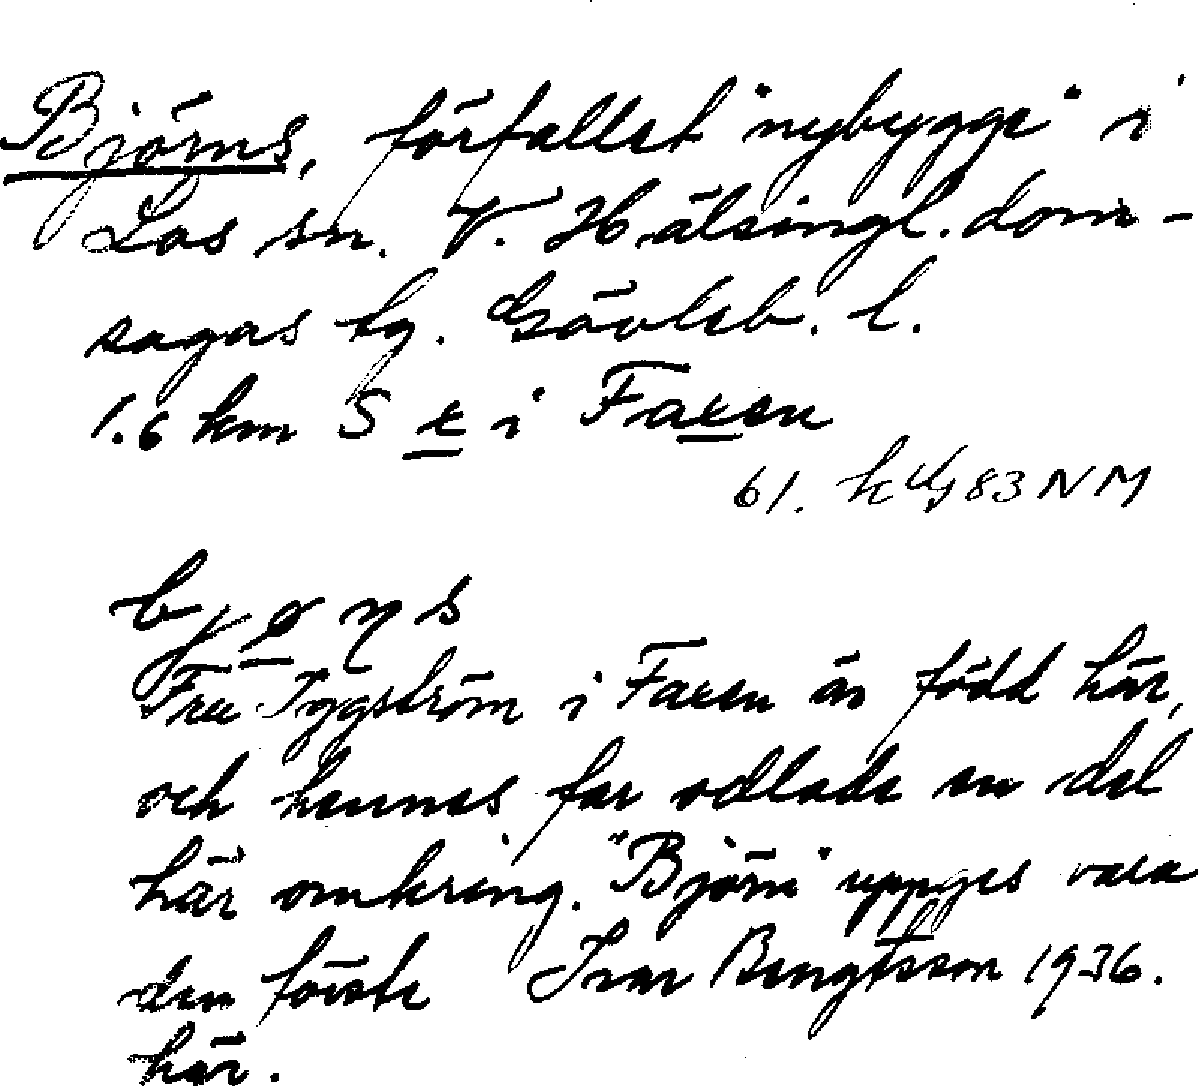 Björns, förfallet "nybygge" i
Los sn. V. Hälsingl. dom-
sagas tg. Gävleb. l.
1.6 km S x i Faxen
61. 83 NM
bjø̱ɳs
Fru Tyggström i Faxen är född här,
och hennes far odlade en del
här omkring. "Björn" uppges vara
den förste Ivar Bengtsson 1936.
här.